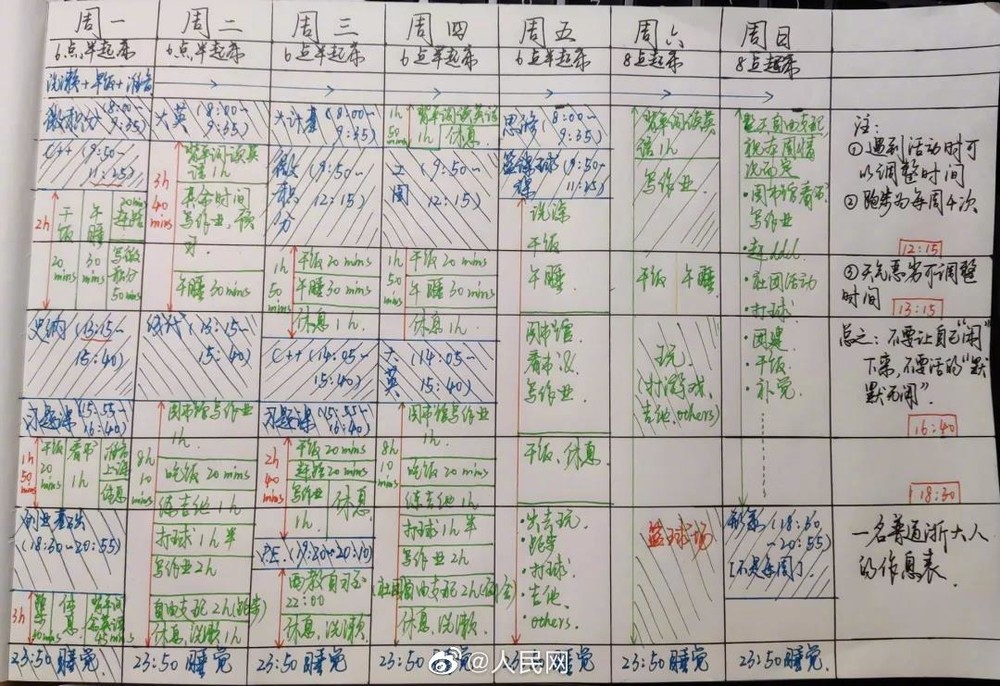 周一 周二 周三 周四 周五 周六 周日
6点半起床 6点半起床 6点半起床 6点半起床 6点半起床 8点起床 8点起床
洗漱+早饭+消食
微积分(8:00~
9:35)
C++(9:50~
11:25)
2h
干饭
20
mins
午睡
30
mins
20mins
写微
积分
50mins
史纲(13:15~
15:40)
习题课(15:55~
16:40)
1h
50
mins
干饭
20
mins
看书
1h
消食
上课
休息
创业基础
(18:30~20:55)
3h
休息
45mins
23:50 睡觉
大英(8:00~
9:35)
3h
40
mins
背单词读英
语1h
其余时间
写作业,预
习
午睡30mins
(13:15~
15:40)
8h
10
mins
图书馆写作业
1h.
吃饭20mins
练吉他1h
打球1h半
写作业2h
自由支配2h(跑步)
休息,洗漱1h
23:50 睡觉
大计基(8:00~
9:35)
微积分
(9:50~
12:15)
1h
50
mins
干饭20mins
午睡30mins
休息1h.
C++(14:05~
15:40)
习题课(15:55~
16:40)
2h
40
mins
干饭20mins
20mins
写作业
1h.
休息
P.E.(19:20~20:10)
西教自习至
22:00
休息,洗漱.
23:50睡觉
1h
50
mins
背单词读英语
1h
休息
工图
(9:50~
12:15)
1h
50
mins
干饭20mins
午睡30mins
休息1h
大英
(14:05~
15:40)
8h
10
mins
图书馆写作业
1h
吃饭20mins
练吉他1h
打球1h半
写作业2h
自由支配2h
休息,洗漱
23:50睡觉
思修(8:00~
9:35)
篮球课
(9:50~
11:25)
洗澡
干饭
午睡
图书馆
看书&
写作业
干饭、休息
·出去玩.
·跑步
·打球.
·吉他.
·others.
23:50睡觉
背单词读英
语1h
写作业.
干饭 午睡
玩
(打游戏,
吉他,others)
篮球场
23:50睡觉
整天自由支配,
视存周情
况而定
·图书馆看书
写作业
·赶ddl
·社团活动
·打球
·团建
·干饭.
·补觉
(18:30
~20:55)
[不是每周]
23:50睡觉.
注:
①遇到活动时可
以调整时间
②跑步为每周4次
12:15
③天气恶劣可调整
时间
13:15
总之:不要让自己“闲”
下来,不要活的“默
默无闻”
16:40
18:30
一名普通浙大人
的作息表.
@人民网